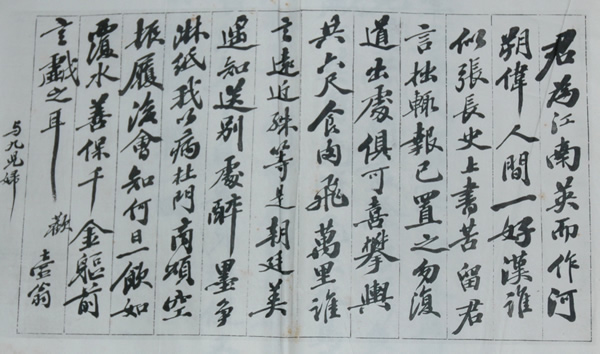 君為江南英而作河
朔偉人間一好漢誰
似張長史上書苦留君
言拙輒報已置之勿復
道出處俱可喜攀輿
共六尺食肉飛萬里誰
言遠近殊等是朝廷美
遥知送別處醉墨爭
淋紙我以病杜門商頌空
振履後會知何日一歡如
覆水善保千金軀前
言戲之耳
壺翁